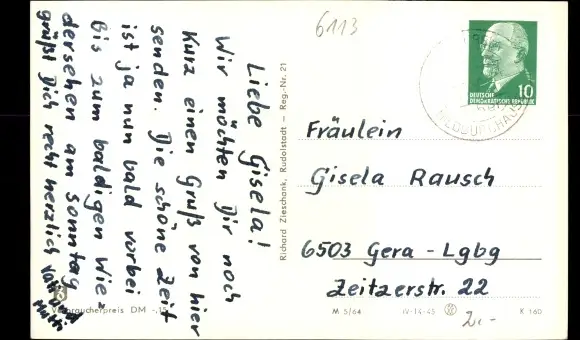 6113
Liebe Gisela!
Wir möchten Dir noch
kurz einen Gruß von hier
senden. Die schöne Zeit
ist ja nun bald vorbei
Bis zum baldigen Wie=
dersehen am Sonntag
grüßt Dich recht herzlich Vati und
Mutti
Verbraucherpreis DM -,15
Richard Zieschank, Rudolstadt – Reg.-Nr. 21
10
DEUTSCHE
DEMOKRATISCHE REPUBLIK
Fräulein
Gisela Rausch
6503 Gera - Lgbg
Zeitzerstr. 22
M 5/64 IV-14-45 K 160
2,-